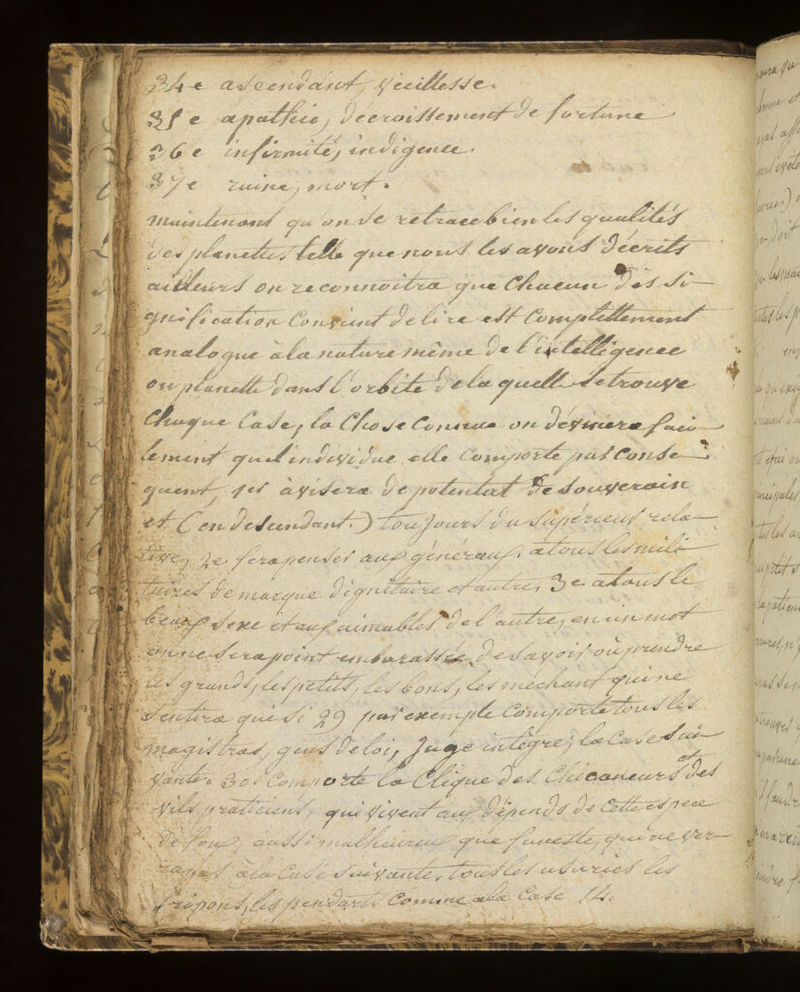 34e ascendant, vieillesse.
35 e apathie, décroissement de fortune
36 e infirmité, indigence.
37e ruine, mort.
maintenant qu'on se retrace bien les qualités
des planettes telle que nous les avons décrits
ailleurs on reconnoitra que Chacune des si-
gnification Convient de lire est Complettement
analogue à la nature même de l'intelligence
ou planette dans l'orbite de la quelle se trouve
Chaque Case, la Chose Connue on devinera faci-
lement quel individue elle Comporte par Conse-
quent, 1er avisera de potentat de souverain
et (en descendant) toujours du supérieur rela-
tive, 2e fera penser aux généraux, a tous les mili-
taires de marque dignitaire et autre, 3e a tous le
beaux sexe et aux aimables de l'autre, en un mot
on ne sera point embarassée de savoir où prendre
les grands, les petits, les bons, les méchant qui ne
sentira que si 29 par exemple Comporte tous les
magistras, gens de loi, Juge integre, la Case sui-
vante 30e Comporte la Clique des Chicaneurs et des
vils praticiens, qui vivent aux dépends de Cette espece
de foux, aussi malheureux que funeste, qui ne ver-
ra pas à la Case suivante, tous les usuries les
fripons, les pendarts Comme a la Case 14.